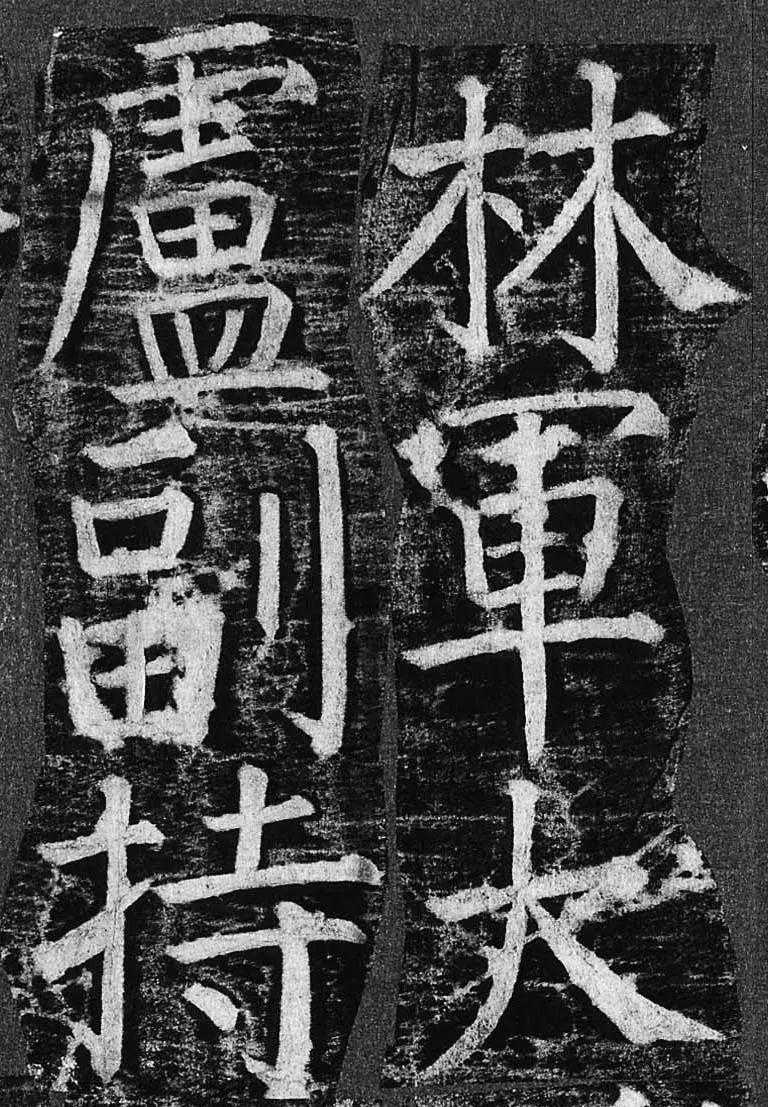 林軍大
盧副持